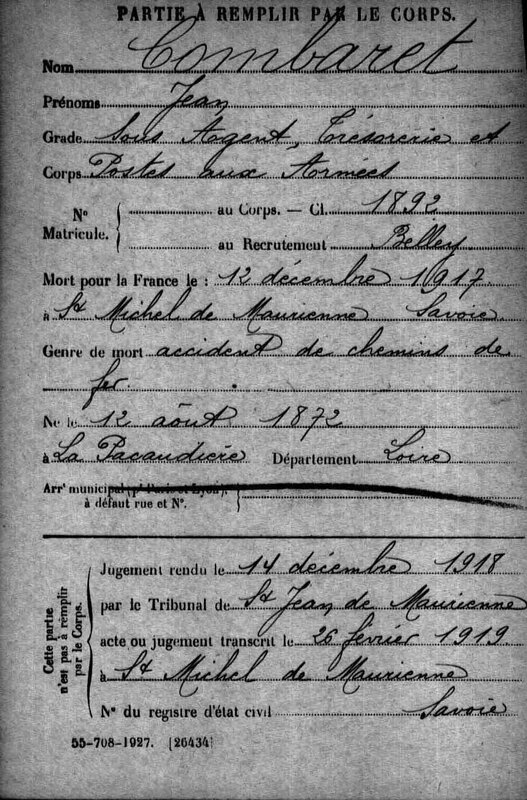 PARTIE À REMPLIR PAR LE CORPS.
Nom Combaret
Prénoms Jean
Grade Sous Agent, Trésorerie et
Corps Postes aux Armées
N° Matricule. { au Corps. — Cl. 1892
au Recrutement Belley
Mort pour la France le : 12 décembre 1917
à St Michel de Maurienne Savoie
Genre de mort accident de chemins de
fer.
Né le 12 août 1872
à La Pacaudière Département Loire
Arr^t municipal (p^r Paris et Lyon),
à défaut rue et N°.
Cette partie n'est pas à remplir par le Corps.
Jugement rendu le 14 décembre 1918
par le Tribunal de St Jean de Maurienne
acte ou jugement transcrit le 26 février 1919
à St Michel de Maurienne
N° du registre d'état civil Savoie
55-708-1927. [26434]